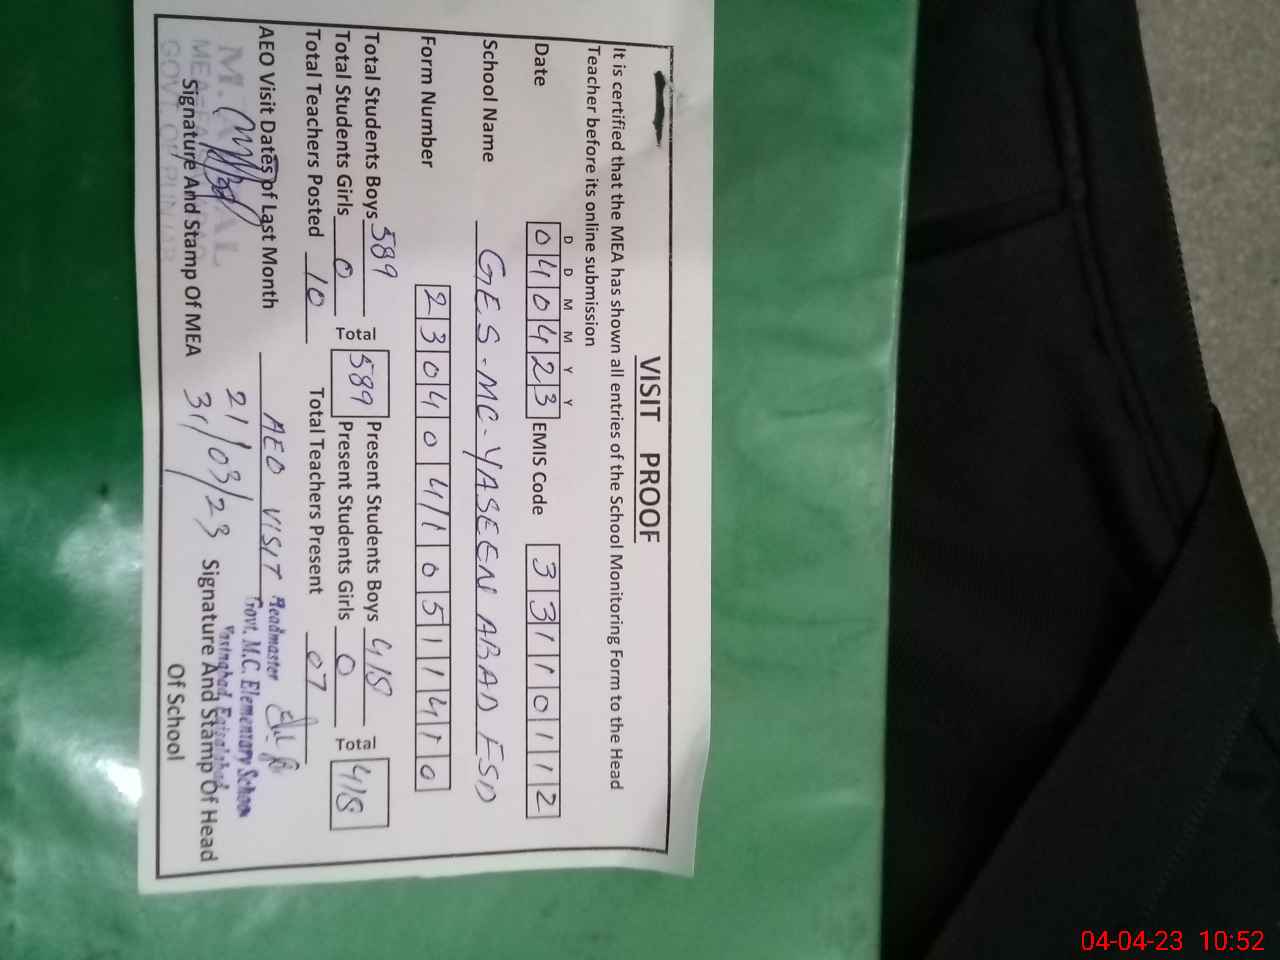 VISIT PROOF
It is certified that the MEA has shown all entries of the School Monitoring Form to the Head
Teacher before its online submission
D D M M Y Y
Date 040423 EMIS Code 33110112
School Name GES-MC-YASEEN ABAD FSD
Form Number 23040410511410
Total Students Boys 589 Present Students Boys 418
Total Students Girls 0 Total 589 Present Students Girls 0 Total 418
Total Teachers Posted 10 Total Teachers Present 07
AEO Visit Dates of Last Month AEO VISIT
21/03/23
31/
Headmaster
Govt. M.C. Elementary School
Yasinabad, Faisalabad
Signature And Stamp Of MEA
Signature And Stamp Of Head
Of School
04-04-23 10:52